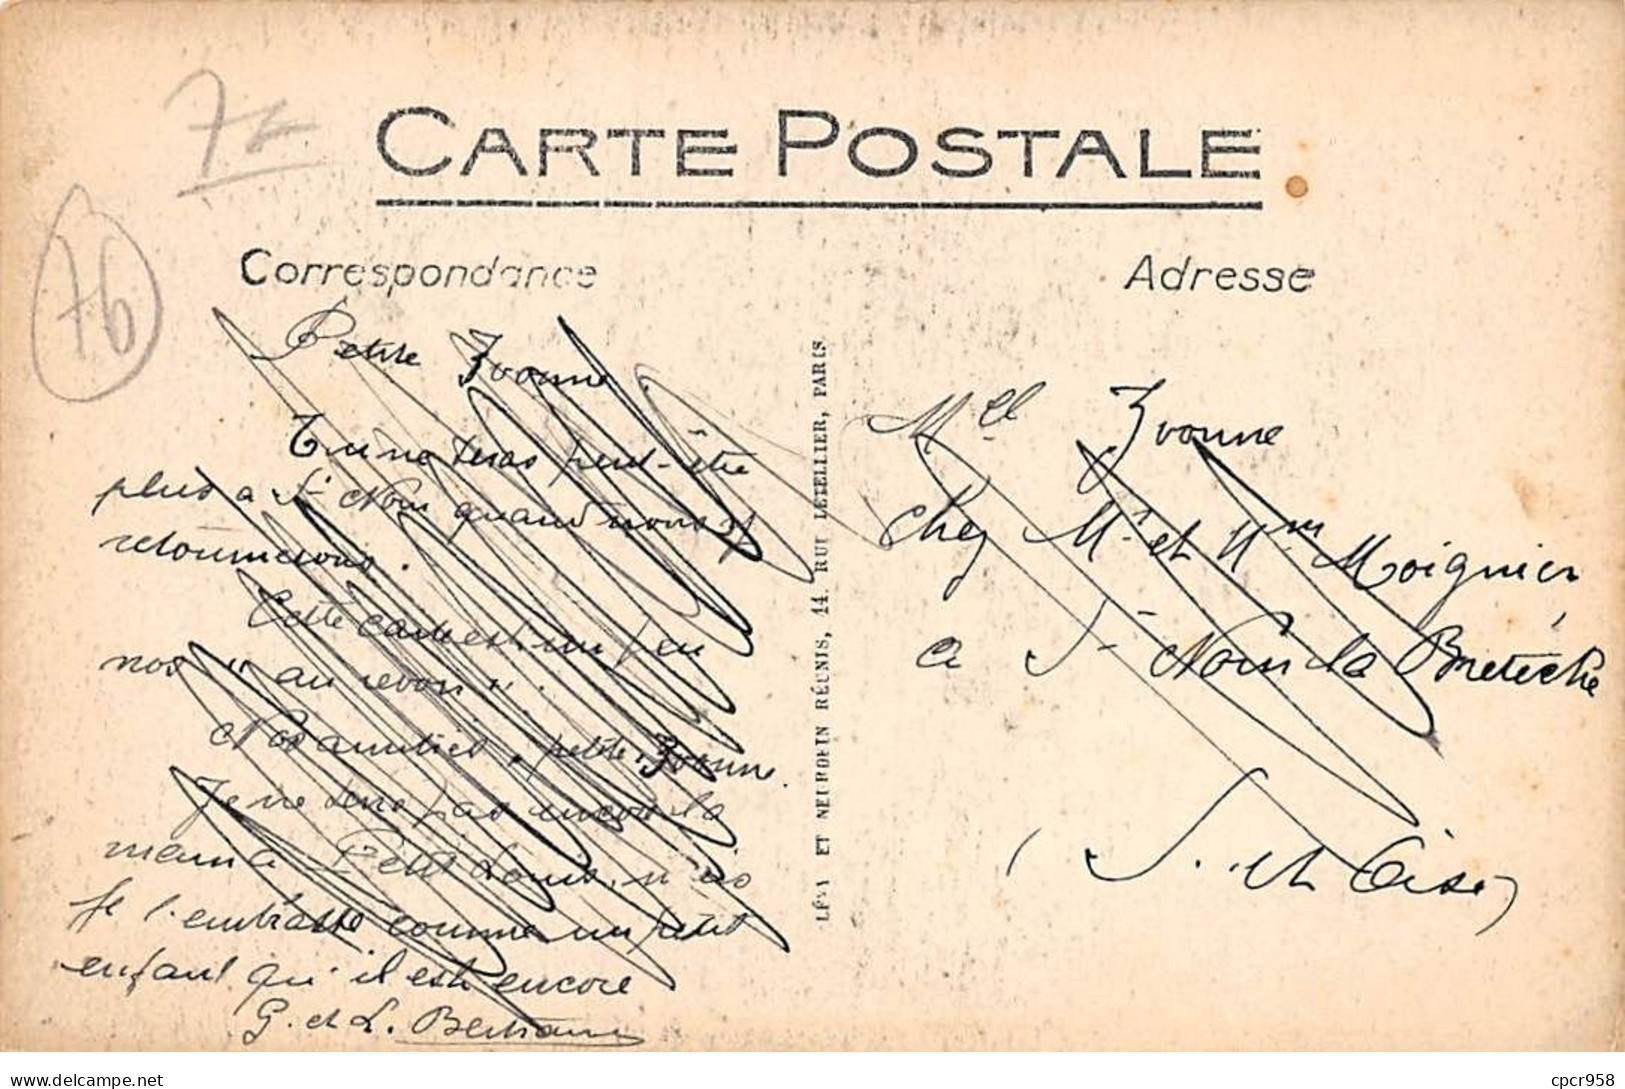 76
CARTE POSTALE
Correspondance
Adresse
Petite Yvonne.
Tu ne seras peut-être
plus a St Nom quand nous y
retournerons.
Cette carte est un peu
nos "au revoir".
Nos amitiés, petite Yvonne.
Je ne tiens pas encore la
main a Petit Louis, mais
je l'embrasse comme un petit
enfant qu'il est encore
G. et L. Bertrand
LÉVY ET NEURDEIN RÉUNIS, 44, RUE LETELLIER, PARIS
Mell Yvonne
chez Mr et Mm Moignier
a St Nom la Bretèche
(S. et Oise)
delcampe.net
cpcr958